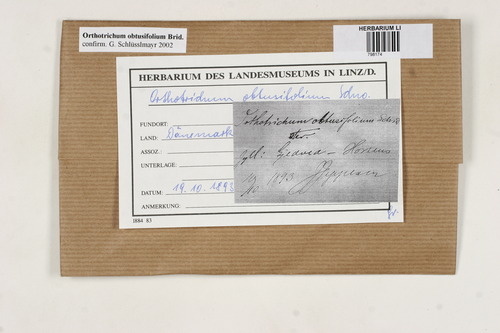 Orthotrichum obtusifolium Brid.
confirm. G. Schlüsslmayr 2002
HERBARIUM LI
HERBARIUM DES LANDESMUSEUMS IN LINZ/D.
Orthotrichum obtusifolium Schrad.
FUNDORT:
LAND: Dänemark
ASSOZ.:
UNTERLAGE:
DATUM: 19.10.1893
ANMERKUNG:
1884 83
Orthotrichum obtusifolium
ster.
Horsens
19/10 1893